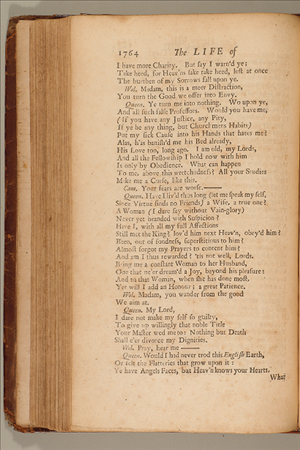 1764 The LIFE of
I have more Charity. But say I warn'd ye;
Take heed, for Heav'ns sake take heed, lest at once
The burthen of my Sorrows fall upon ye.
Wol. Madam, this is a meer Distraction,
You turn the Good we offer into Envy.
Queen. Ye turn me into nothing. Wo upon ye,
And all such false Professors. Would you have me,
(If you have any Justice, any Pity,
If ye be any thing, but Churchmens Habits)
Put my sick Cause into his Hands that hates me?
Alas, h'as banish'd me his Bed already,
His Love too, long ago. I am old, my Lords,
And all the Fellowship I hold now with him
Is only by Obedience. What can happen
To me, above this wretchedness? All your Studies
Make me a Curse, like this.
Cam. Your fears are worse.——
Queen. Have I liv'd thus long (let me speak my self,
Since Virtue finds no Friends) a Wife, a true one?
A Woman (I dare say without Vain-glory)
Never yet branded with Suspicion?
Have I, with all my full Affections
Still met the King? lov'd him next Heav'n, obey'd him?
Been, out of fondness, superstitious to him?
Almost forgot my Prayers to content him?
And am I thus rewarded? 'tis not well, Lords.
Bring me a constant Woman to her Husband,
One that ne'er dream'd a Joy, beyond his pleasure;
And to that Woman, when she has done most,
Yet will I add an Honour; a great Patience.
Wol. Madam, you wander from the good
We aim at.
Queen. My Lord,
I dare not make my self so guilty,
To give up willingly that noble Title
Your Master wed me to: Nothing but Death
Shall e'er divorce my Dignities.
Wol. Pray, hear me——
Queen. Would I had never trod this English Earth,
Or felt the Flatteries that grow upon it:
Ye have Angels Faces, but Heav'n knows your Hearts.
What